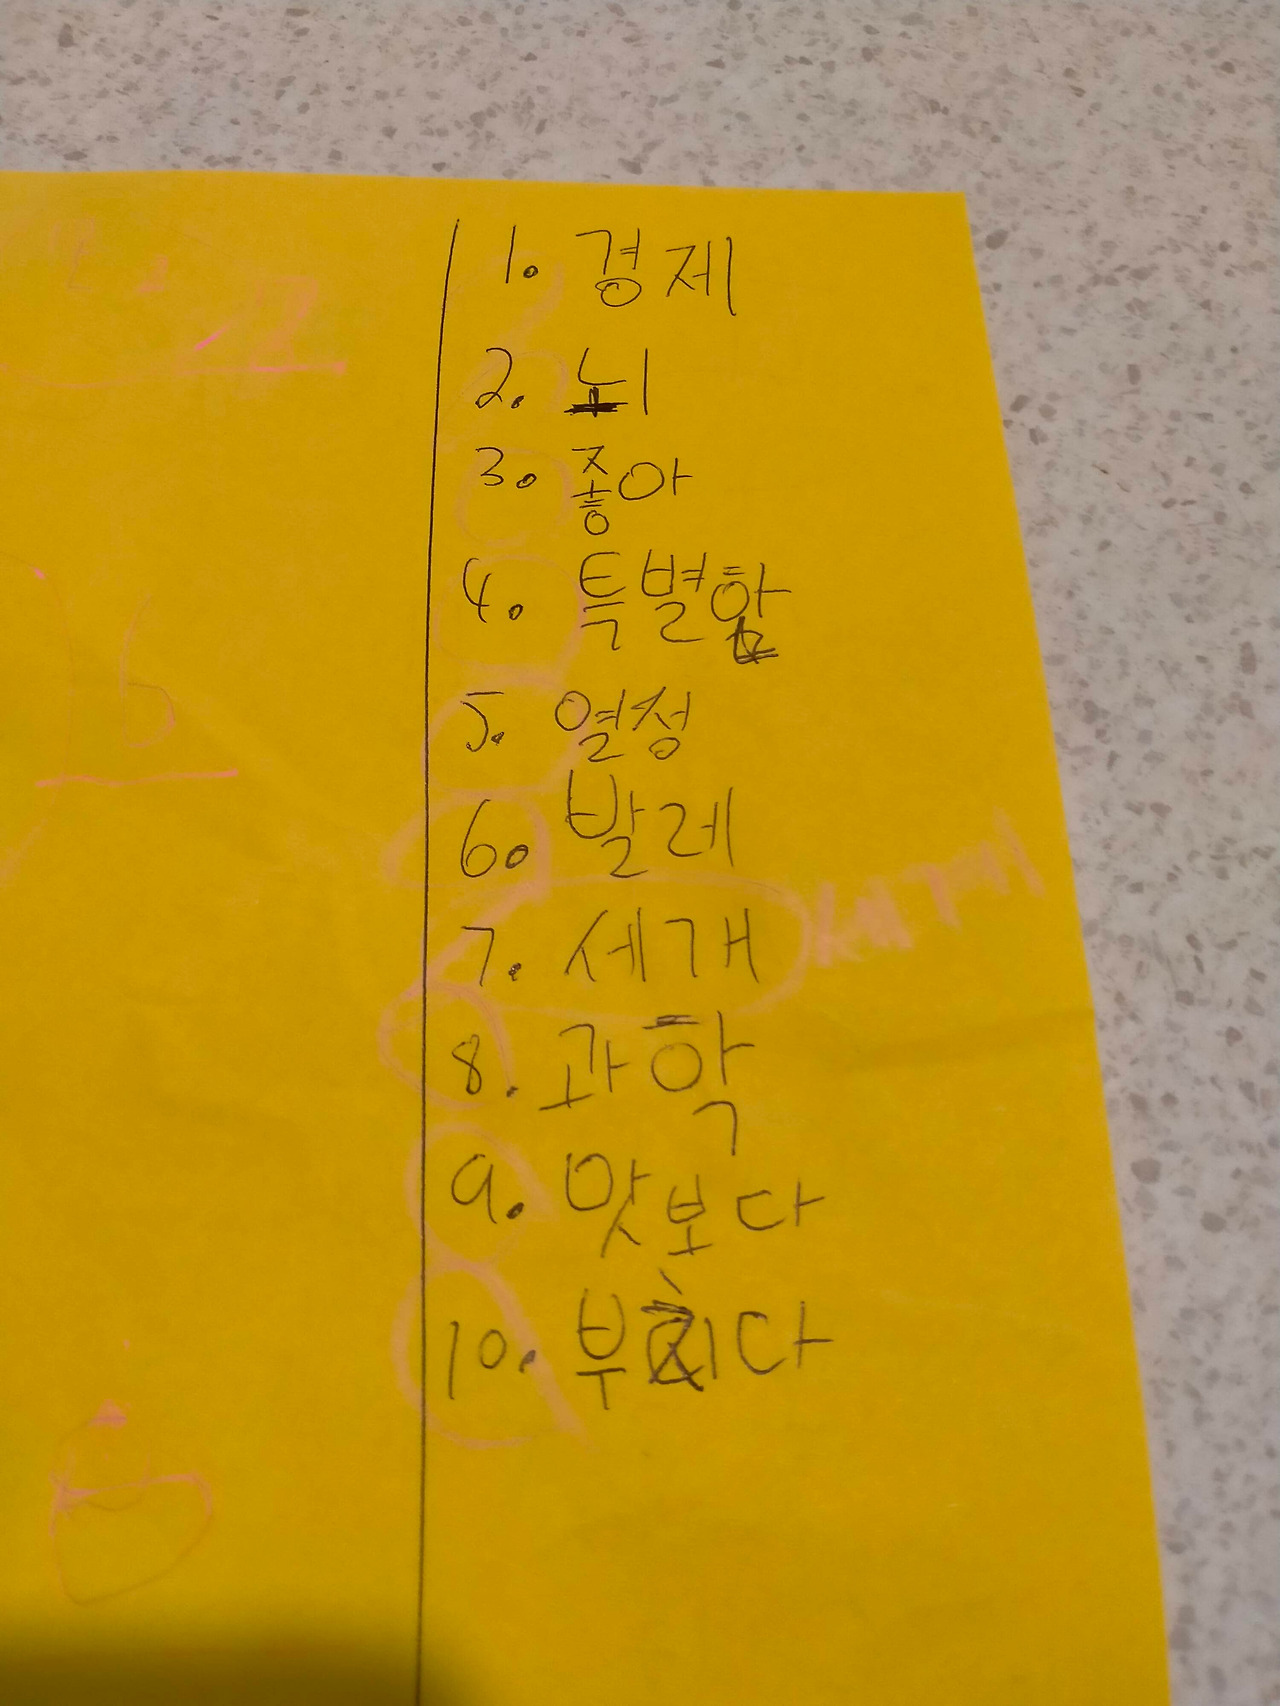 1. 경제
2. 뇌
3. 좋아
4. 특별함
5. 열성
6. 발레
7. 세개 세계
8. 과학
9. 맛보다
6